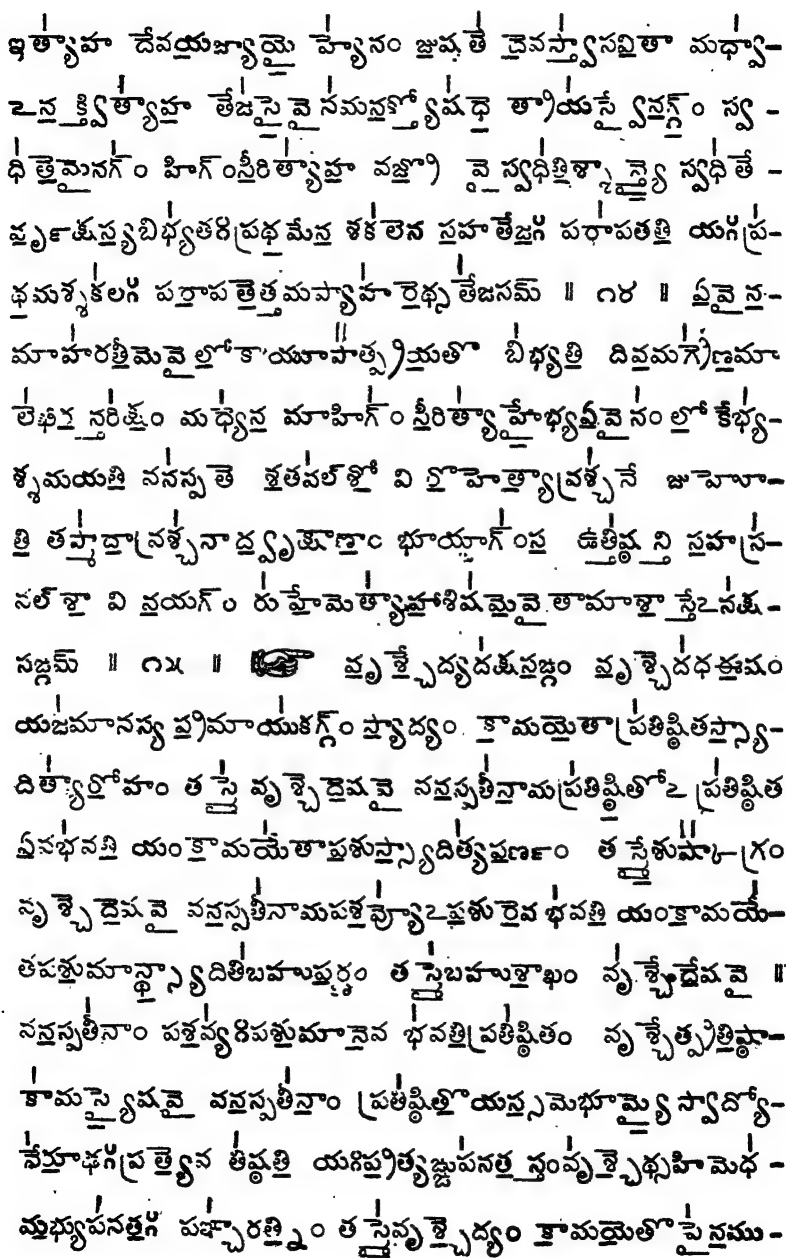 ఇత్యాహ దేవయజ్యాయై హ్యేనం జుషతే దైవస్త్వాసవితా మధ్వా-
ఽనక్త్విత్యాహ తేజసైవైనమనక్త్యోషధే త్రాయస్వైనగ్గ్ం స్వ-
ధితేమైనగ్ం హిగ్ంసీరిత్యాహ వజ్రో వై స్వధితిశ్శాన్త్యై స్వధితే-
వృ౯క్షస్యబిభ్యతఃప్రథమేన శకలేన సహతేజః పరాపతతి యఃప్ర-
థమశ్శకలః పరాపతేత్తమప్యాహరేథ్సతేజసమ్ ॥ ౧౪ ॥ ఏవైన-
మాహరతీమెవైలోకాయూపాత్ప్రయతొ బిభ్యతి దివమగ్రేణమా
లేఖీరన్తరిక్షం మధ్యేన మాహిగ్ం సీరిత్యాహైభ్యఏవైనం లోకేభ్య-
శ్శమయతి వనస్పతె శతవల్‌శో వి రొహెత్యావ్రశ్చనే జుహొ-
తి తస్మాదావ్రశ్చనాద్వృక్షాణాం భూయాగ్ంస ఉత్తిష్ఠన్తి సహస్ర-
వల్‌శా వి వయగ్ం రుహేమెత్యాహాశిషమెవైతామాశాస్తేఽనక్ష-
సఙ్గమ్ ॥ ౧౫ ॥ ☞ వృశ్చేద్యదక్షసఙ్గం వృశ్చెదధఈషం
యజమానస్య ప్రమాయుకగ్గ్ం స్యాద్యం కామయెతాప్రతిష్ఠితస్స్యా-
దిత్యారోహం తస్మై వృశ్చెదెషవై వనస్పతీనామప్రతిష్ఠితోఽప్రతిష్ఠిత
ఏవభవతి యంకామయేతాపశుస్స్యాదిత్యపణ౯ం తస్మైశుష్కాగ్రం
వృశ్చెదెషవై వనస్పతీనామపశవ్యోఽపశురెవభవతి యంకామయే-
తపశుమాన్థ్స్యాదితిబహుపర్ణం తస్మైబహుశాఖం వృశ్చేదేషవై ॥
వనస్పతీనాం పశవ్యఃపశుమానెవ భవతిప్రతిష్ఠితం వృశ్చేత్ప్రతిష్ఠా-
కామస్యైషవై వనస్పతీనాం ప్రతిష్ఠితొయస్సమెభూమ్యై స్వాద్యో-
నేరూఢఃప్రత్యెవ తిష్ఠతి యఃప్రత్యఙ్ఙుపనతస్తంవృశ్చెథ్సహిమెధ-
మభ్యుపనతః పఞ్చారత్నిం తస్మైవృశ్చెద్యం కామయెతొపైనము-